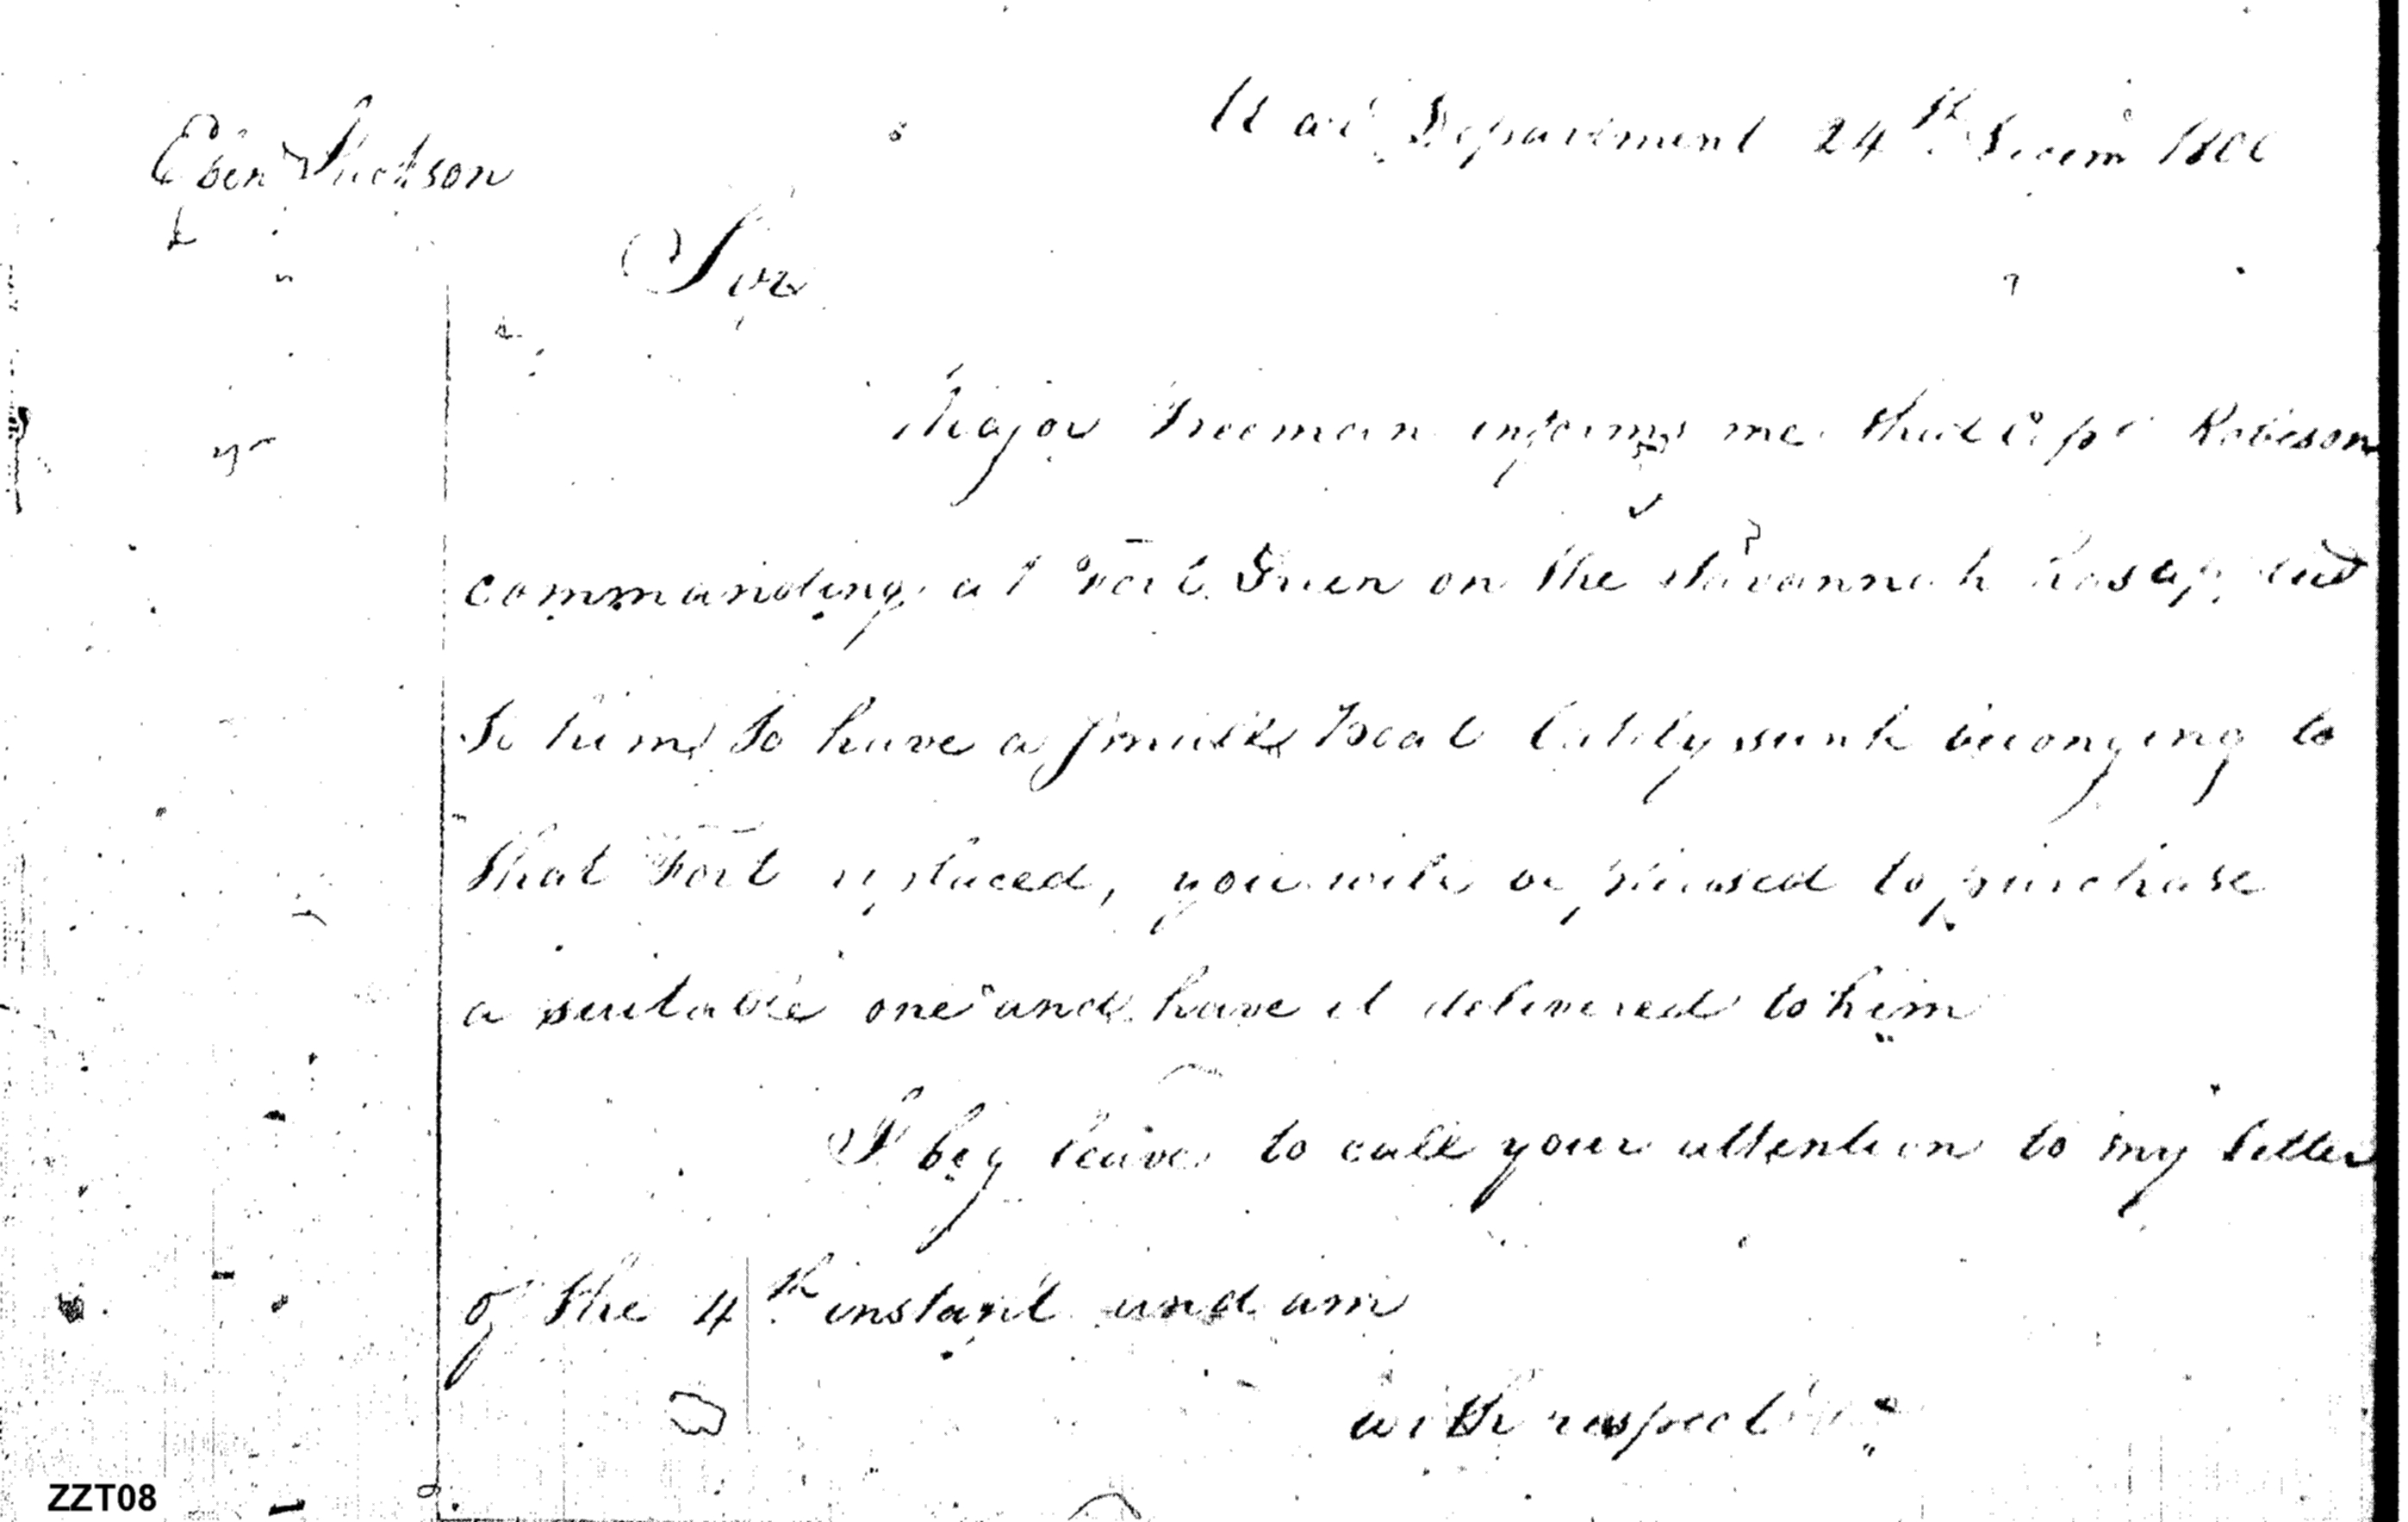 War Department 24th Decem 1800
Eben Jackson
Sir
Major Freeman informs me that Capt Robeson
commanding at Fort Green on the Savannah has applied
to him to have a small Boat lately sunk belonging to
that Fort replaced, you will be pleased to purchase
a suitable one and have it delivered to him
I beg leave to call your attention to my letter
of the 4th instant and am
with respect
ZZT08